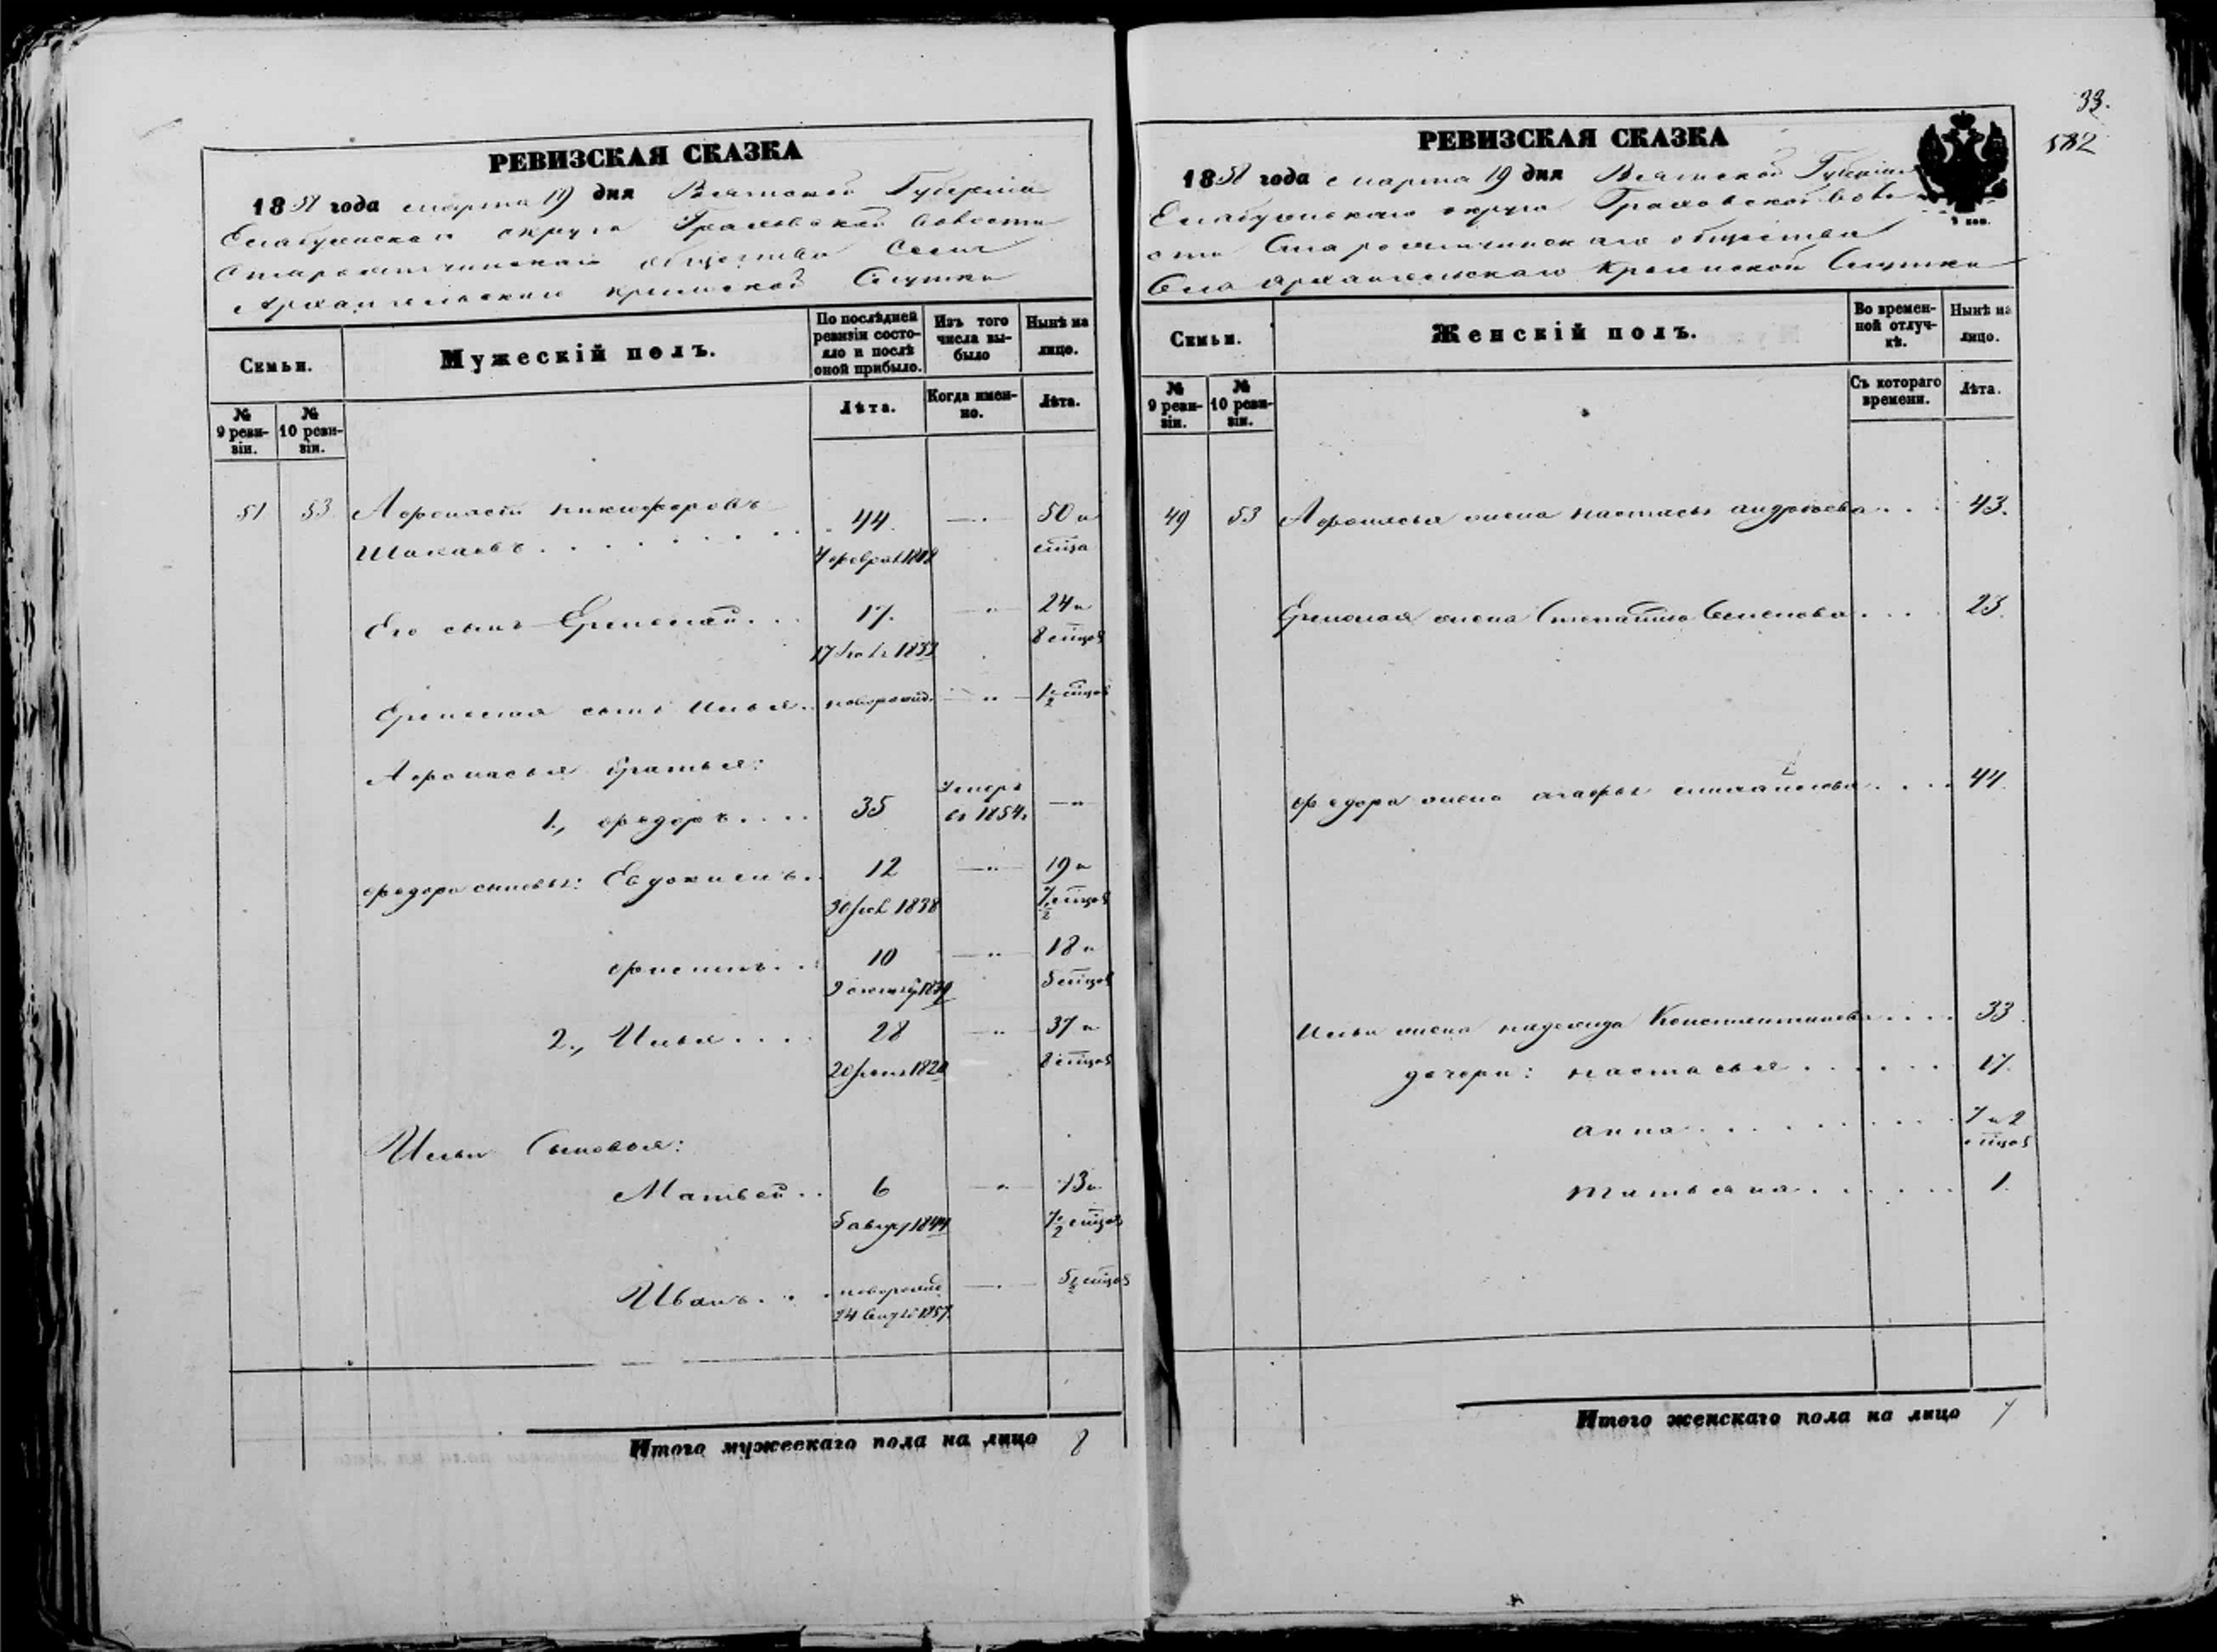 РЕВИЗСКАЯ СКАЗКА
1858 года марта 19 дня Вятской Губернiи
Елабужскаго округа Граховской волости
общества Села
Архангельскаго
Семьи.
Мужескiй полъ.
По послѣдней ревизiи состояло и послѣ оной прибыло.
Изъ того числа выбыло
Нынѣ на лицо.
№ 9 ревизiи.
№ 10 ревизiи.
Лѣта.
Когда именно.
Лѣта.
51 53 Афонасiй никифоровъ 44. 50 и
Шакаевъ 4 феврал
Его сынъ Ермолай 17. 24 и
8 мцов
Ермолая сынъ Илья новорожд. 1/2 мцов
Афонасья братья:
1., федоръ 35 Умеръ въ 1854.
федора сыновья: Евдокимъ 12 19 и
1838 7 1/2 мцов
филипъ 10 18 и
1839 5 мцов
2., Илья 28 37 и
1820 8 мцов
Ильи Сыновья:
Матвей 6 13 и
5 август 1844 7 1/2 мцов
Иванъ новорожд 5 1/2 мцов
1857.
Итого мужескаго пола на лицо 8
33.
582
РЕВИЗСКАЯ СКАЗКА
1858 года марта 19 дня Вятской Губернiи
Елабужскаго округа Граховской воло
сти общества
Села Архангельскаго
Семьи.
Женскiй полъ.
Во временной отлучкѣ.
Нынѣ на лицо.
№ 9 ревизiи.
№ 10 ревизiи.
Съ котораго времени.
Лѣта.
49 53 Афонасья жена настасья андреева 43.
Ермолая жена Степанида Семенова 23.
федора жена агафья михайлова 44.
Ильи жена надежда Константинова 33
дочери: настасья 17.
анна 7 и 2
мцов
татьяна 1.
Итого женскаго пола на лицо 7